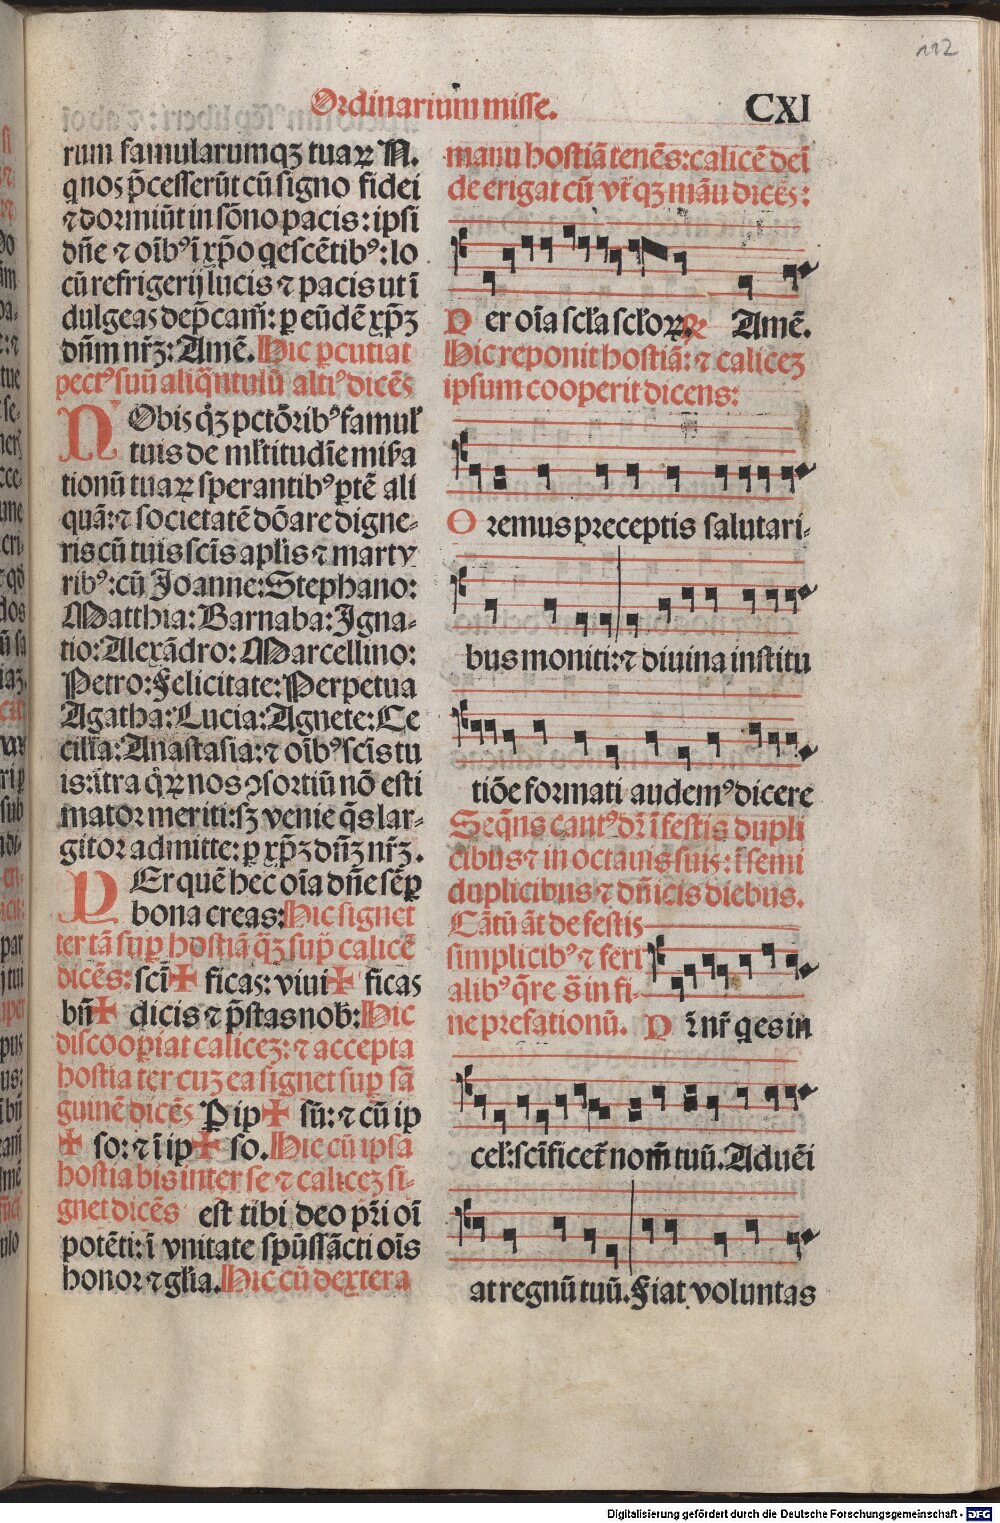 112
Ordinarium misse.
CXI
rum famularumqꝫ tuaꝝ N.
q nos p̄cesserūt cū signo fidei
⁊ dormiūt in sōno pacis: ipsi
dn̄e ⁊ oībꝰ ī xp̄o q̄escētibꝰ: lo
cū refrigerij lucis ⁊ pacis ut ī
dulgeas dep̄cam̄: ꝑ eūdē xp̄ꝫ
dn̄m nr̄ꝫ: Amē. Hic ꝑcutiat
pectꝰ suū aliq̄ntulū altiꝰ dicēs
NObis q̄ꝫ pctōribꝰ famul̄
tuis de ml̄titudīe misa
tionū tuaꝝ sperantibꝰ ꝑtē ali
quā: ⁊ societatē dōare digne-
ris cū tuis scīs aplīs ⁊ marty
ribꝰ: cū Joanne: Stephano:
Matthia: Barnaba: Igna-
tio: Alexādro: Marcellino:
Petro: Felicitate: Perpetua
Agatha: Lucia: Agnete: Ce
cilia: Anastasia: ⁊ oībꝰ scīs tu
is: ītra q̄ꝝ nos ↄsortiū nō esti
mator meriti: sꝫ venie q̄s lar-
gitor admitte: ꝑ xp̄ꝫ dn̄ꝫ nr̄ꝫ.
PEr quē hec oīa dn̄e sēꝑ
bona creas: Hic signet
ter tā suꝑ hostiā q̄ꝫ suꝑ calicē
dicēs: scī✠ ficas: viui✠ ficas
bn̄✠ dicis ⁊ p̄stas nob: Hic
discooꝑiat caliceꝫ: ⁊ accepta
hostia ter cuꝫ ea signet suꝑ sā
guinē dicēs P ip✠ sū: ⁊ cū ip
✠ so: ⁊ ī ip✠ so. Hic cū ipsa
hostia bis inter se ⁊ caliceꝫ si-
gnet dicēs est tibi deo pr̄i oī
potēti: ī vnitate spūssācti oīs
honor ⁊ gl̄ia. Hic cū dextera
manu hostiā tenēs: calicē deī
de erigat cū vtr̄qꝫ māu dicēs:
P er oīa scl̄a scl̄oꝝ. ℞ Amē.
Hic reponit hostiā: ⁊ calicez
ipsum cooperit dicens:
O remus preceptis salutari-
bus moniti: ⁊ diuina institu
tiōe formati audemꝰ dicere
Seq̄ns cantꝰ dr̄ ī festis dupli
cibus ⁊ in octauis suis: ī semi
duplicibus ⁊ dn̄icis diebus.
Cātū āt de festis
simplicibꝰ ⁊ feri
alibꝰ q̄re s̄ in fi-
ne prefationū. P r̄ nr̄ q es in
cel̄: scīficet̄ nom̄ tuū. Aduēi
at regnū tuū. Fiat voluntas
Digitalisierung gefördert durch die Deutsche Forschungsgemeinschaft - DFG